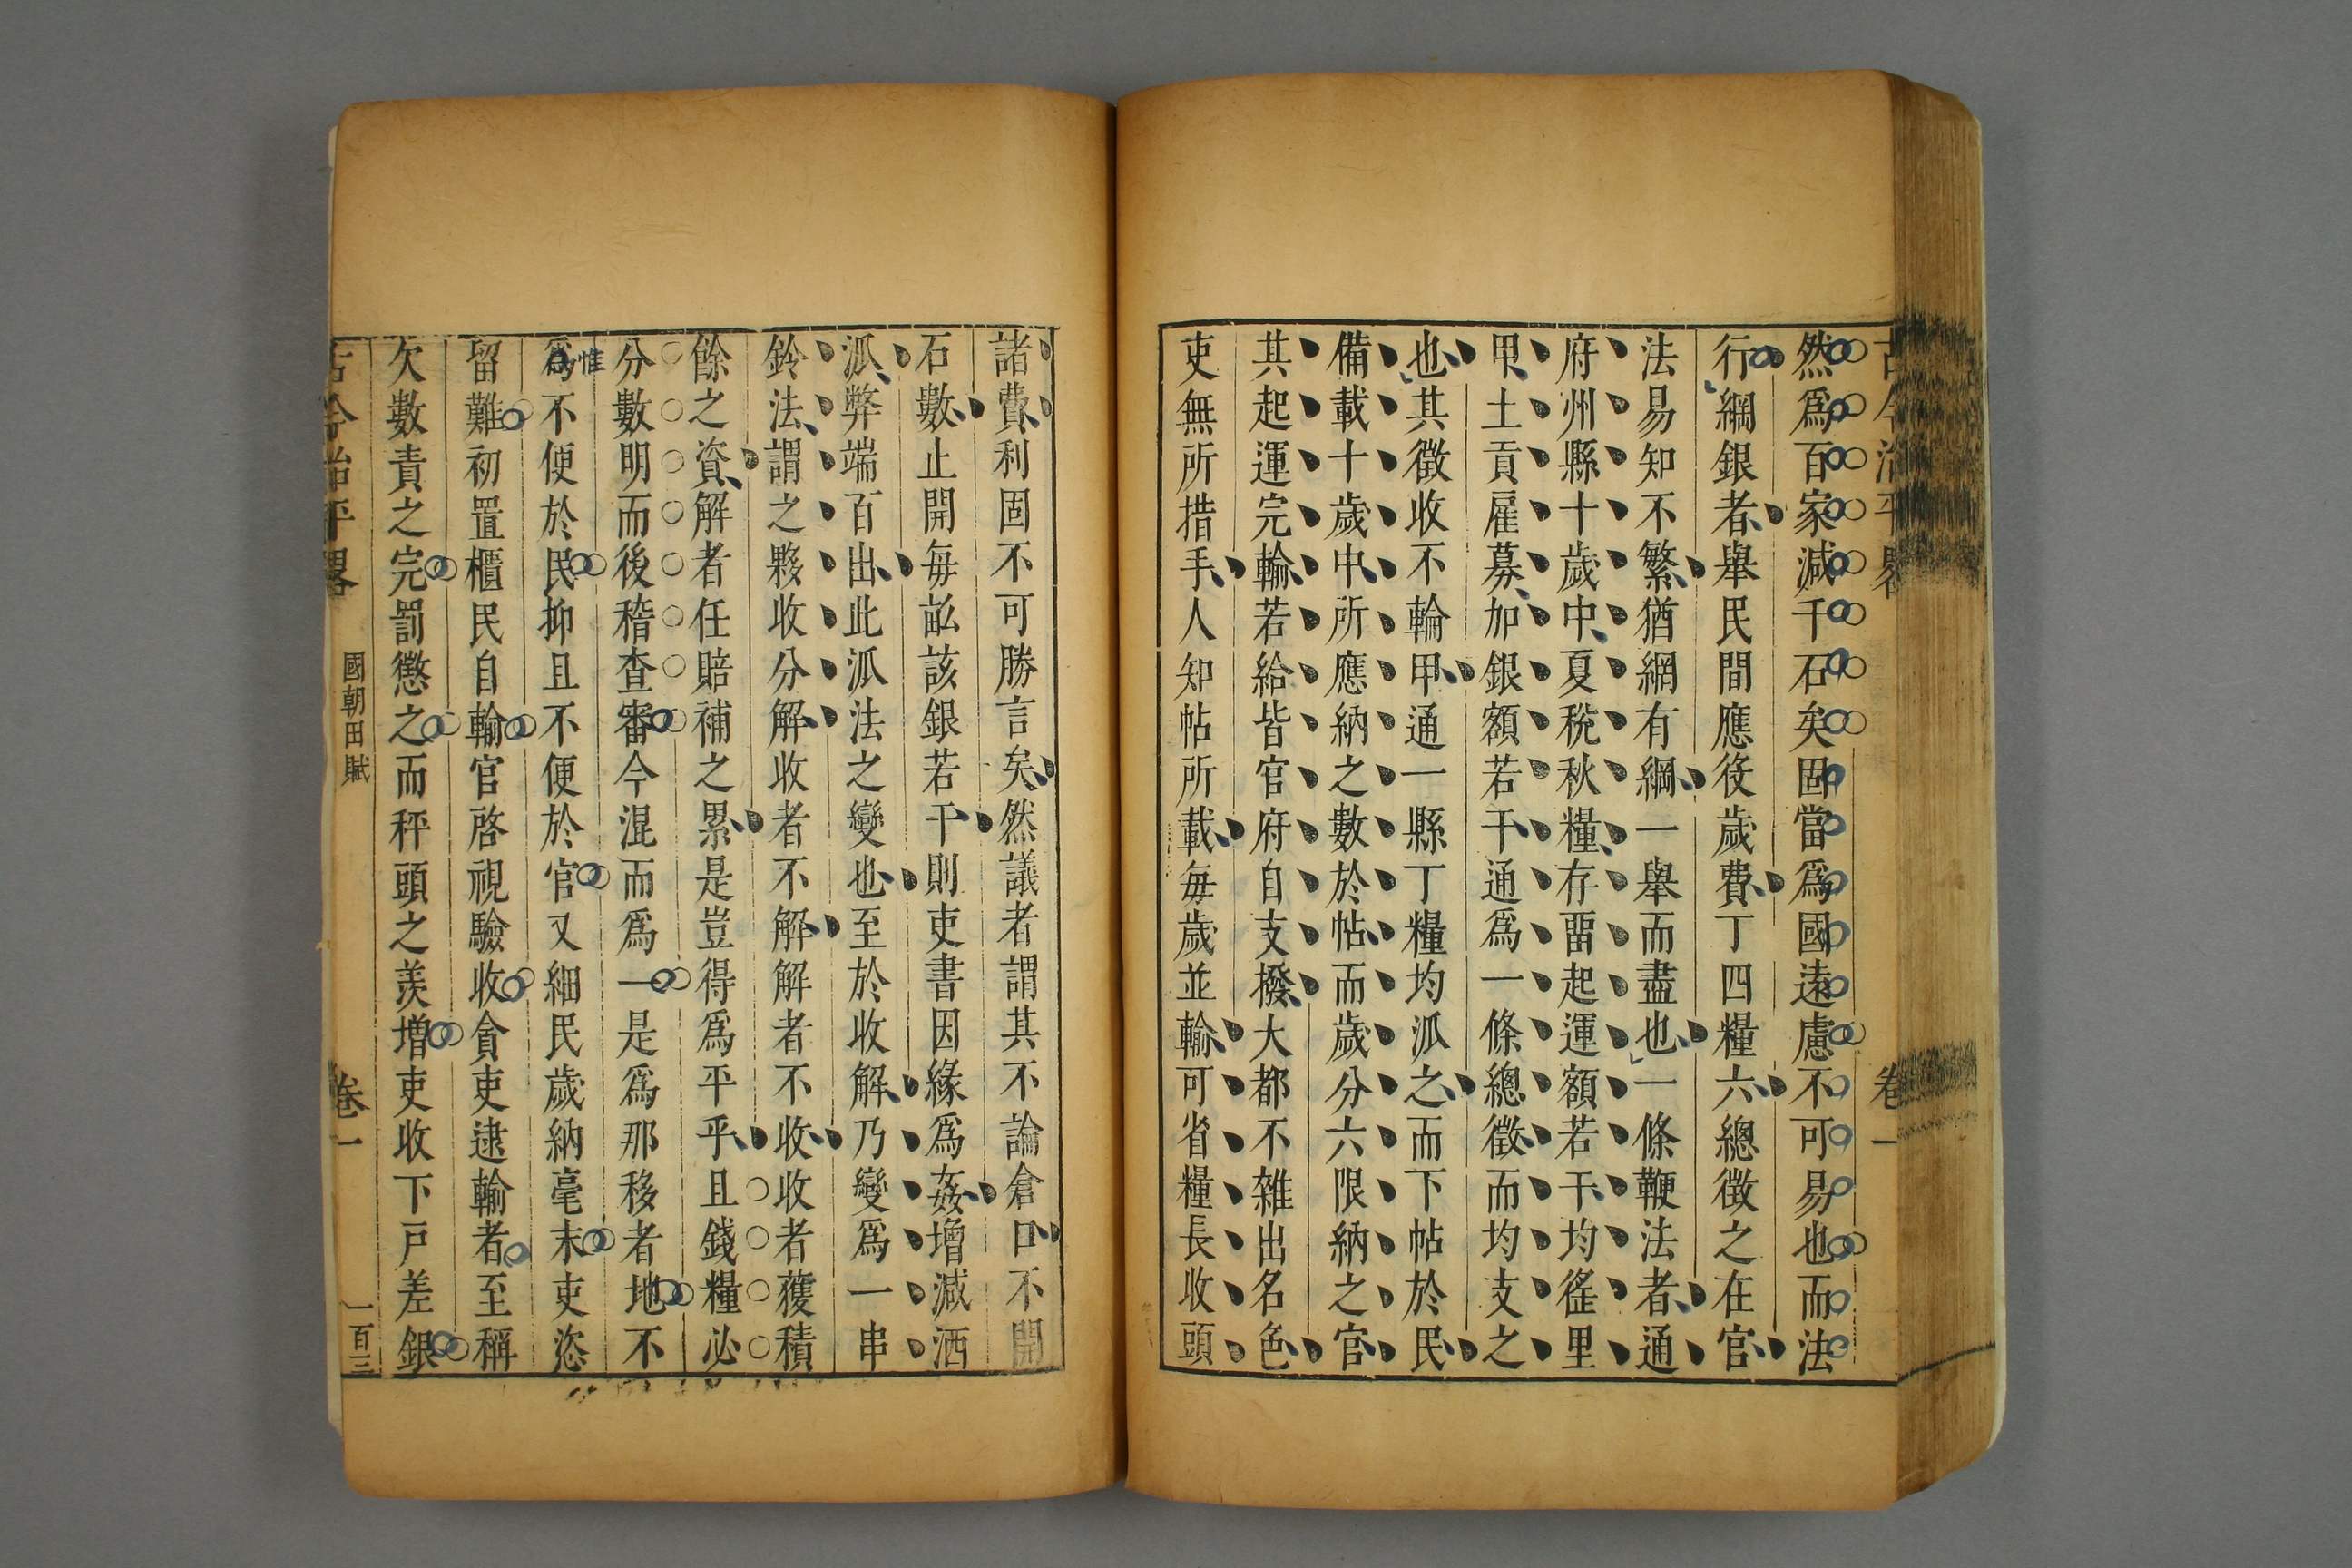 古今治平畧 卷一
然爲百家減千石矣固當爲國遠慮不可易也而法
行綱銀者舉民間應役歲費丁四糧六總徵之在官
法易知不繁猶網有綱一舉而盡也一條鞭法者通
府州縣十歲中夏稅秋糧存畱起運額若干均徭里
甲土貢雇募加銀額若干通爲一條總徵而均支之
也其徵收不輪甲通一縣丁糧均派之而下帖於民
備載十歲中所應納之數於帖而歲分六限納之官
其起運完輸若給皆官府自支撥大都不雜出名色
吏無所措手人知帖所載每歲並輸可省糧長收頭
諸費利固不可勝言矣然議者謂其不論倉口不開
石數止開每畝該銀若干則吏書因緣爲姦增減洒
派弊端百出此派法之變也至於收解乃變爲一串
鈴法謂之夥收分解收者不解解者不收收者獲積
餘之資解者任賠補之累是豈得爲平乎且錢糧必
分數明而後稽查審今混而爲一是爲那移者地不
惟
爲不便於民抑且不便於官又細民歲納毫末吏恣
留難初置櫃民自輸官啓視驗收貪吏逮輸者至稱
欠數責之完罰懲之而秤頭之羨增吏收下戶差銀
古今治平畧 國朝田賦 卷一 一百三